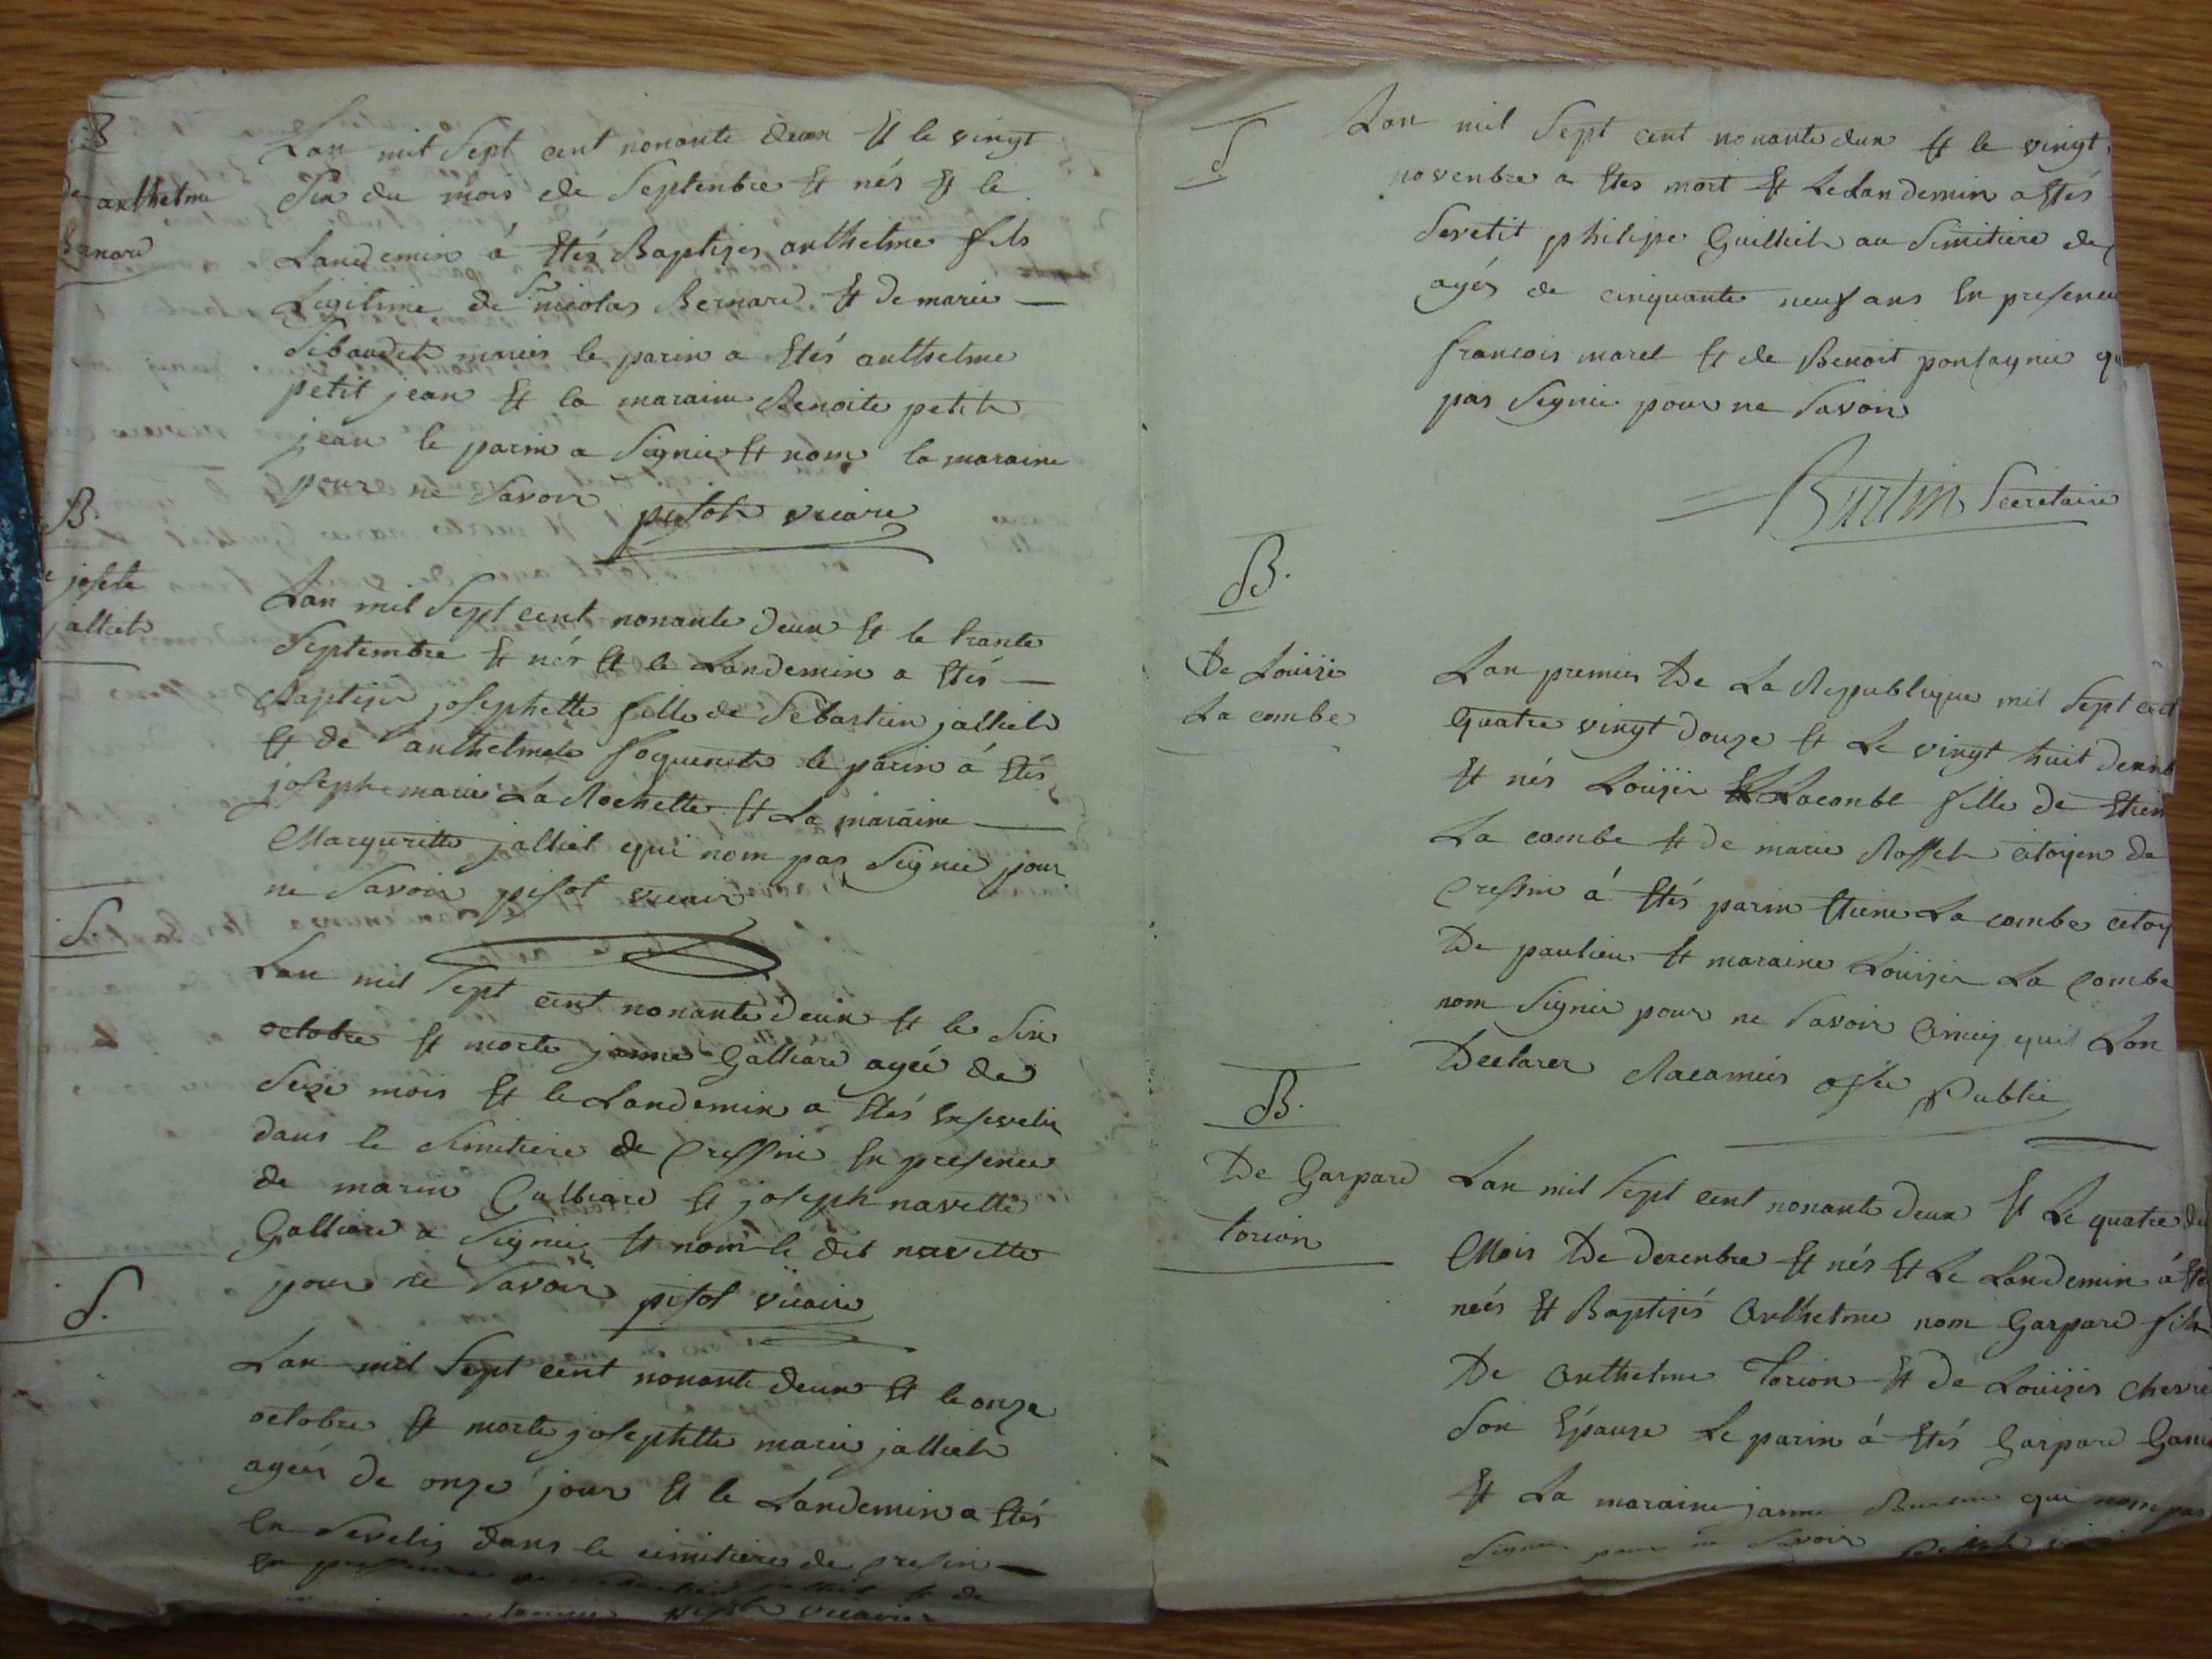 B
de anthelme
Bernard
Lan mil Sept cent nonante deux Et le vingt
Six du mois de Septenbre Et nés Et le
Landemin á Etés Baptizes anthelme fils
Legitime de Sr nicolas Bernard Et de marie
Sibaudet maries le parin a Etés anthelme
petit jean Et la maraine Benoite petit
jean le parin a Signié Et nom la maraine
pour ne Savoir pisot vicaire
B.
josette
jalliet
Lan mil Sept cent nonante deux Et le trante
Septembre Et nés Et le Landemin a Etés
Baptizer josephette fille de Sebastien jalliet
Et de anthelmete foquenet le parin á Etés
joseph marie La Rochette Et La maraine
Margueritte jalliet qui nom pas Signié pour
ne Savoir pisot vicair
S.
Lan mil Sept cent nonante deux Et le Six
octobre Et morte janne Galliard agée de
Seze mois Et le Landemin a Etés Ensevelir
dans le Simitiere de Cressin En presence
de marin Galliard Et joseph navette
Galliard a Signié Et nom le dit navette
pour ne Savoir pisot vicaire
S.
Lan mil Sept cent nonante deux Et le onze
octobre Et morte josephtte marie jalliet
agées de onze jour Et le Landemin a Etés
En Sevelis dans le cimitiere de cresin
En pressence de Sebastien jalliet Et de
pisot vicaire
S
Lan mil Sept cent nonante deux Et le vingt
novenbre a Etes mort Et Le Landemin a Etés
Sevetit philipe Guilliet au Simitiere de
agés de cinquante neuf ans En presence
francois maret Et de Benoit pontagnie
pas Signié pour ne Savoir
Burtin Secretaire
B.
De Louise
La combe
Lan premier De La Republique mil Sept cent
Quatre vingt douze Et Le vingt huit
Et nés Louizer Laconbe fille de Etien
La combe Et De marie Rosset citoyen de
Cressin á Etés parin Etiene La combe citoy
De paulieu Et maraine Louizer La Combe
nom Signié pour ne Savoir Cinsy quil Lon
Declarer Racamier ofsie Public
B.
De Gaspard
torion
Lan mil Sept cent nonante deux Et Le quatre du
Mois De decenbre Et nés Et Le Landemin á Ete
neés Et Baptizés Anthelme nom Gaspard fils
De Anthelme torion Et De Louizes
Son Epauze Le parin á Etés Gaspard
Et La maraine janne qui nom pas
Signié pour ne Savoir